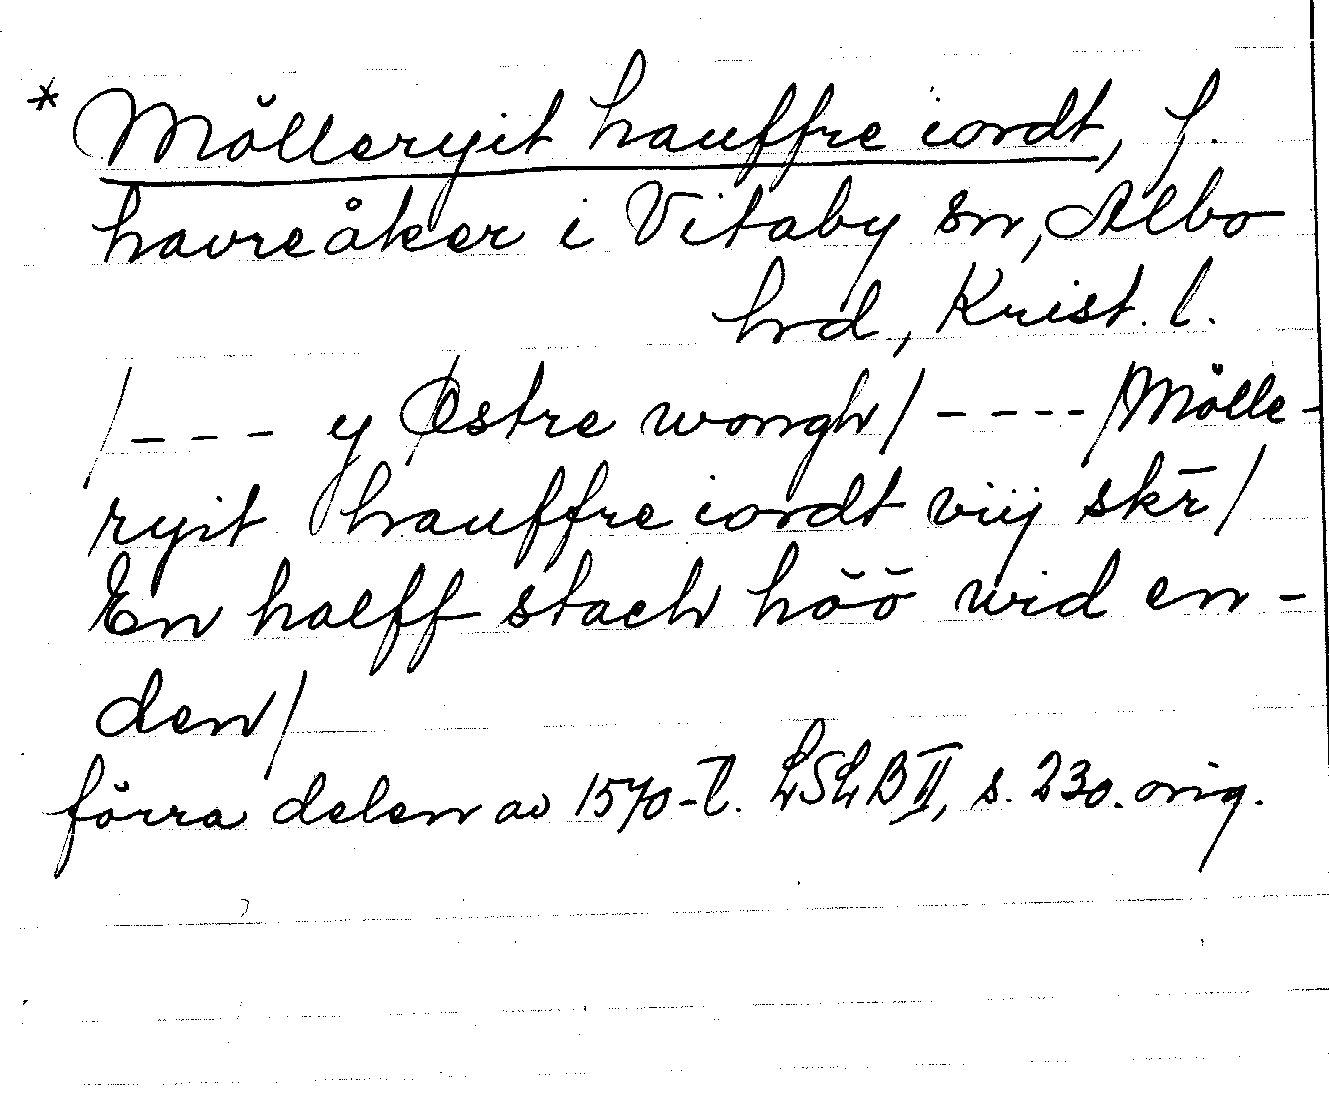 * Mölleryit hauffre iordt, f.
havreåker i Vitaby sn, Albo
hrd, Krist. l.
/--- y Østre wongh/ ---- /Mölle-
ryit hauffre iordt viij skr̄/
En halff stach höö wid en-
den/
förra delen av 1570-t. LSLB II, s. 230. orig.